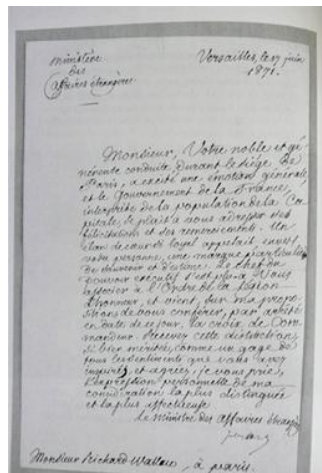 Ministère
des
affaires étrangères
Versailles, le 17 juin
1871.
Monsieur, Votre noble et gé-
néreuse conduite durant le siège de
Paris, a excité une émotion générale,
et le Gouvernement de la France,
interprète de la population de la Ca-
pitale, se plaît à vous adresser ses
félicitations et ses remerciements. Un
élan de cœur si loyal appelait envers
votre personne, une marque particulière
de souvenir et d'estime. Le chef du
pouvoir exécutif s'est plu à Vous
associer à l'Ordre de la Légion
d'honneur, et vient, sur ma propo-
sition de vous conférer, par arrêté
en date de ce jour, la croix de Com-
mandeur. Recevez cette distinction,
si bien méritée, comme un gage de
tous les sentiments que vous avez
inspirés et agréez, je vous prie,
l'expression personnelle de ma
considération la plus distinguée
et la plus affectueuse.
le ministre des affaires étrangères
Monsieur Richard Wallace, à Paris.